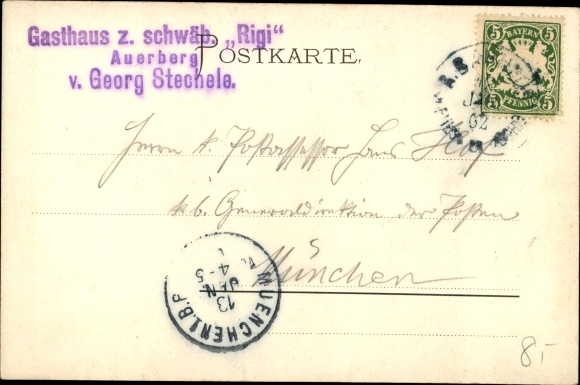 Gasthaus z. schwäb. „Rigi“
Auerberg
v. Georg Stechele.
POSTKARTE.
BAYERN
5 5
5 5
PFENNIG
JAN
02
Herrn k. Postassessor Hans
k. b. Generaldirektion der Posten
München
MUENCHEN I. B.P.
13
JAN
4-5
8.-